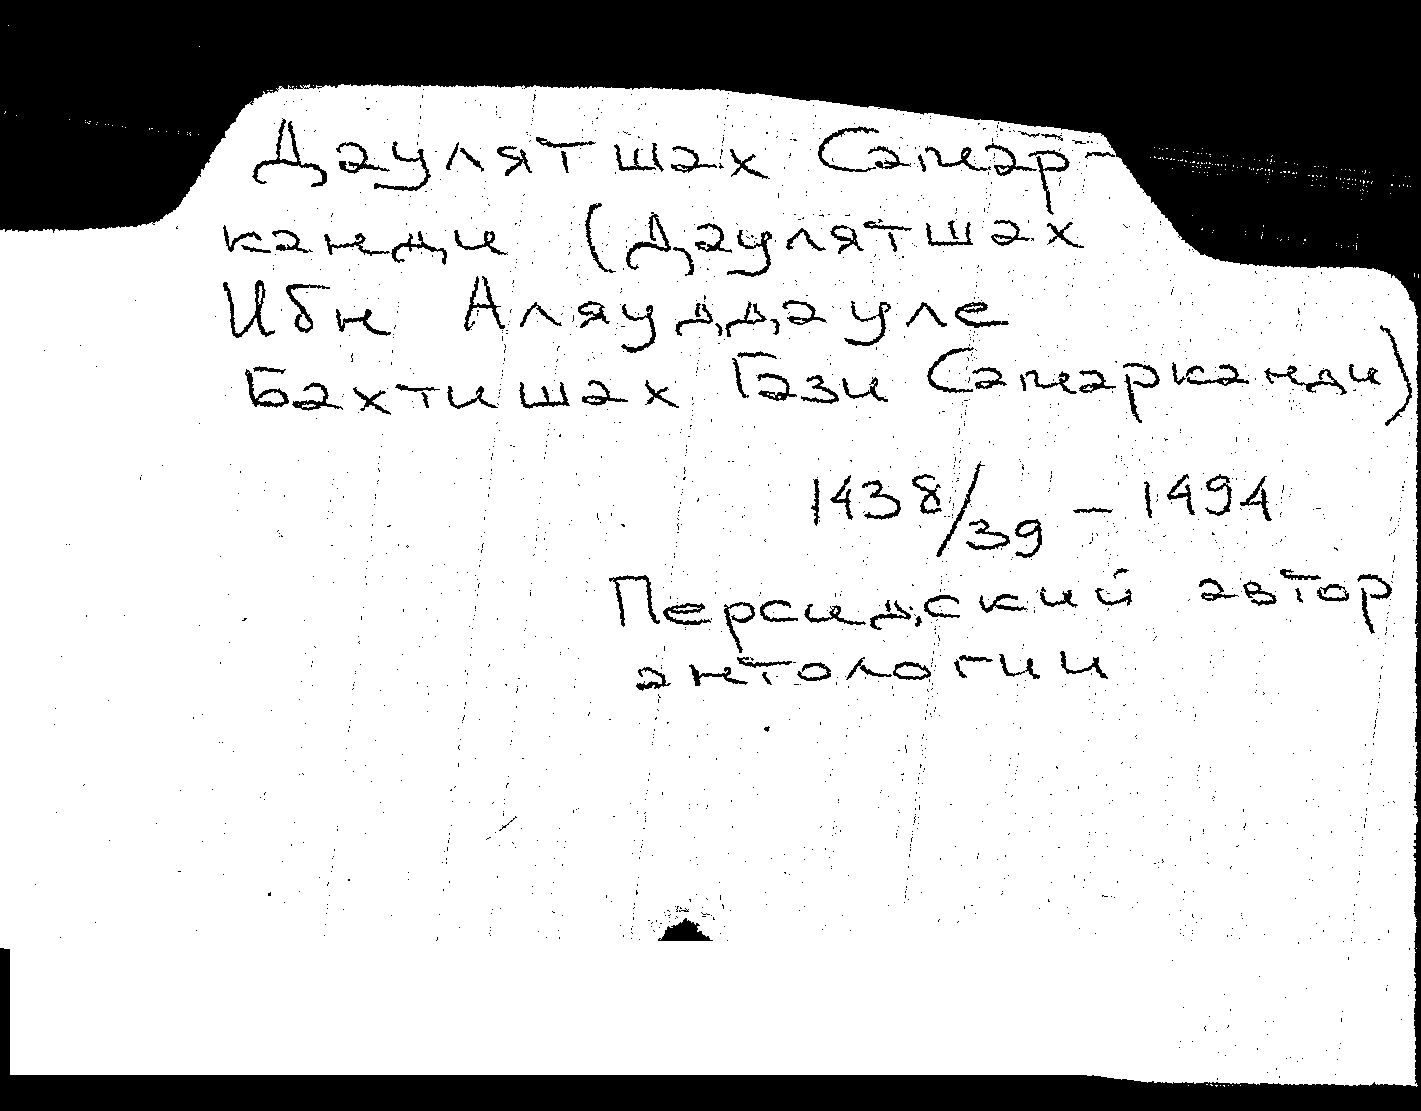 Даулятшах Самар-
канди (Даулятшах
Ибн Аляуддауле
Бахтишах Гази Самарканди)
1438/39 – 1494
Персидский автор
антологии